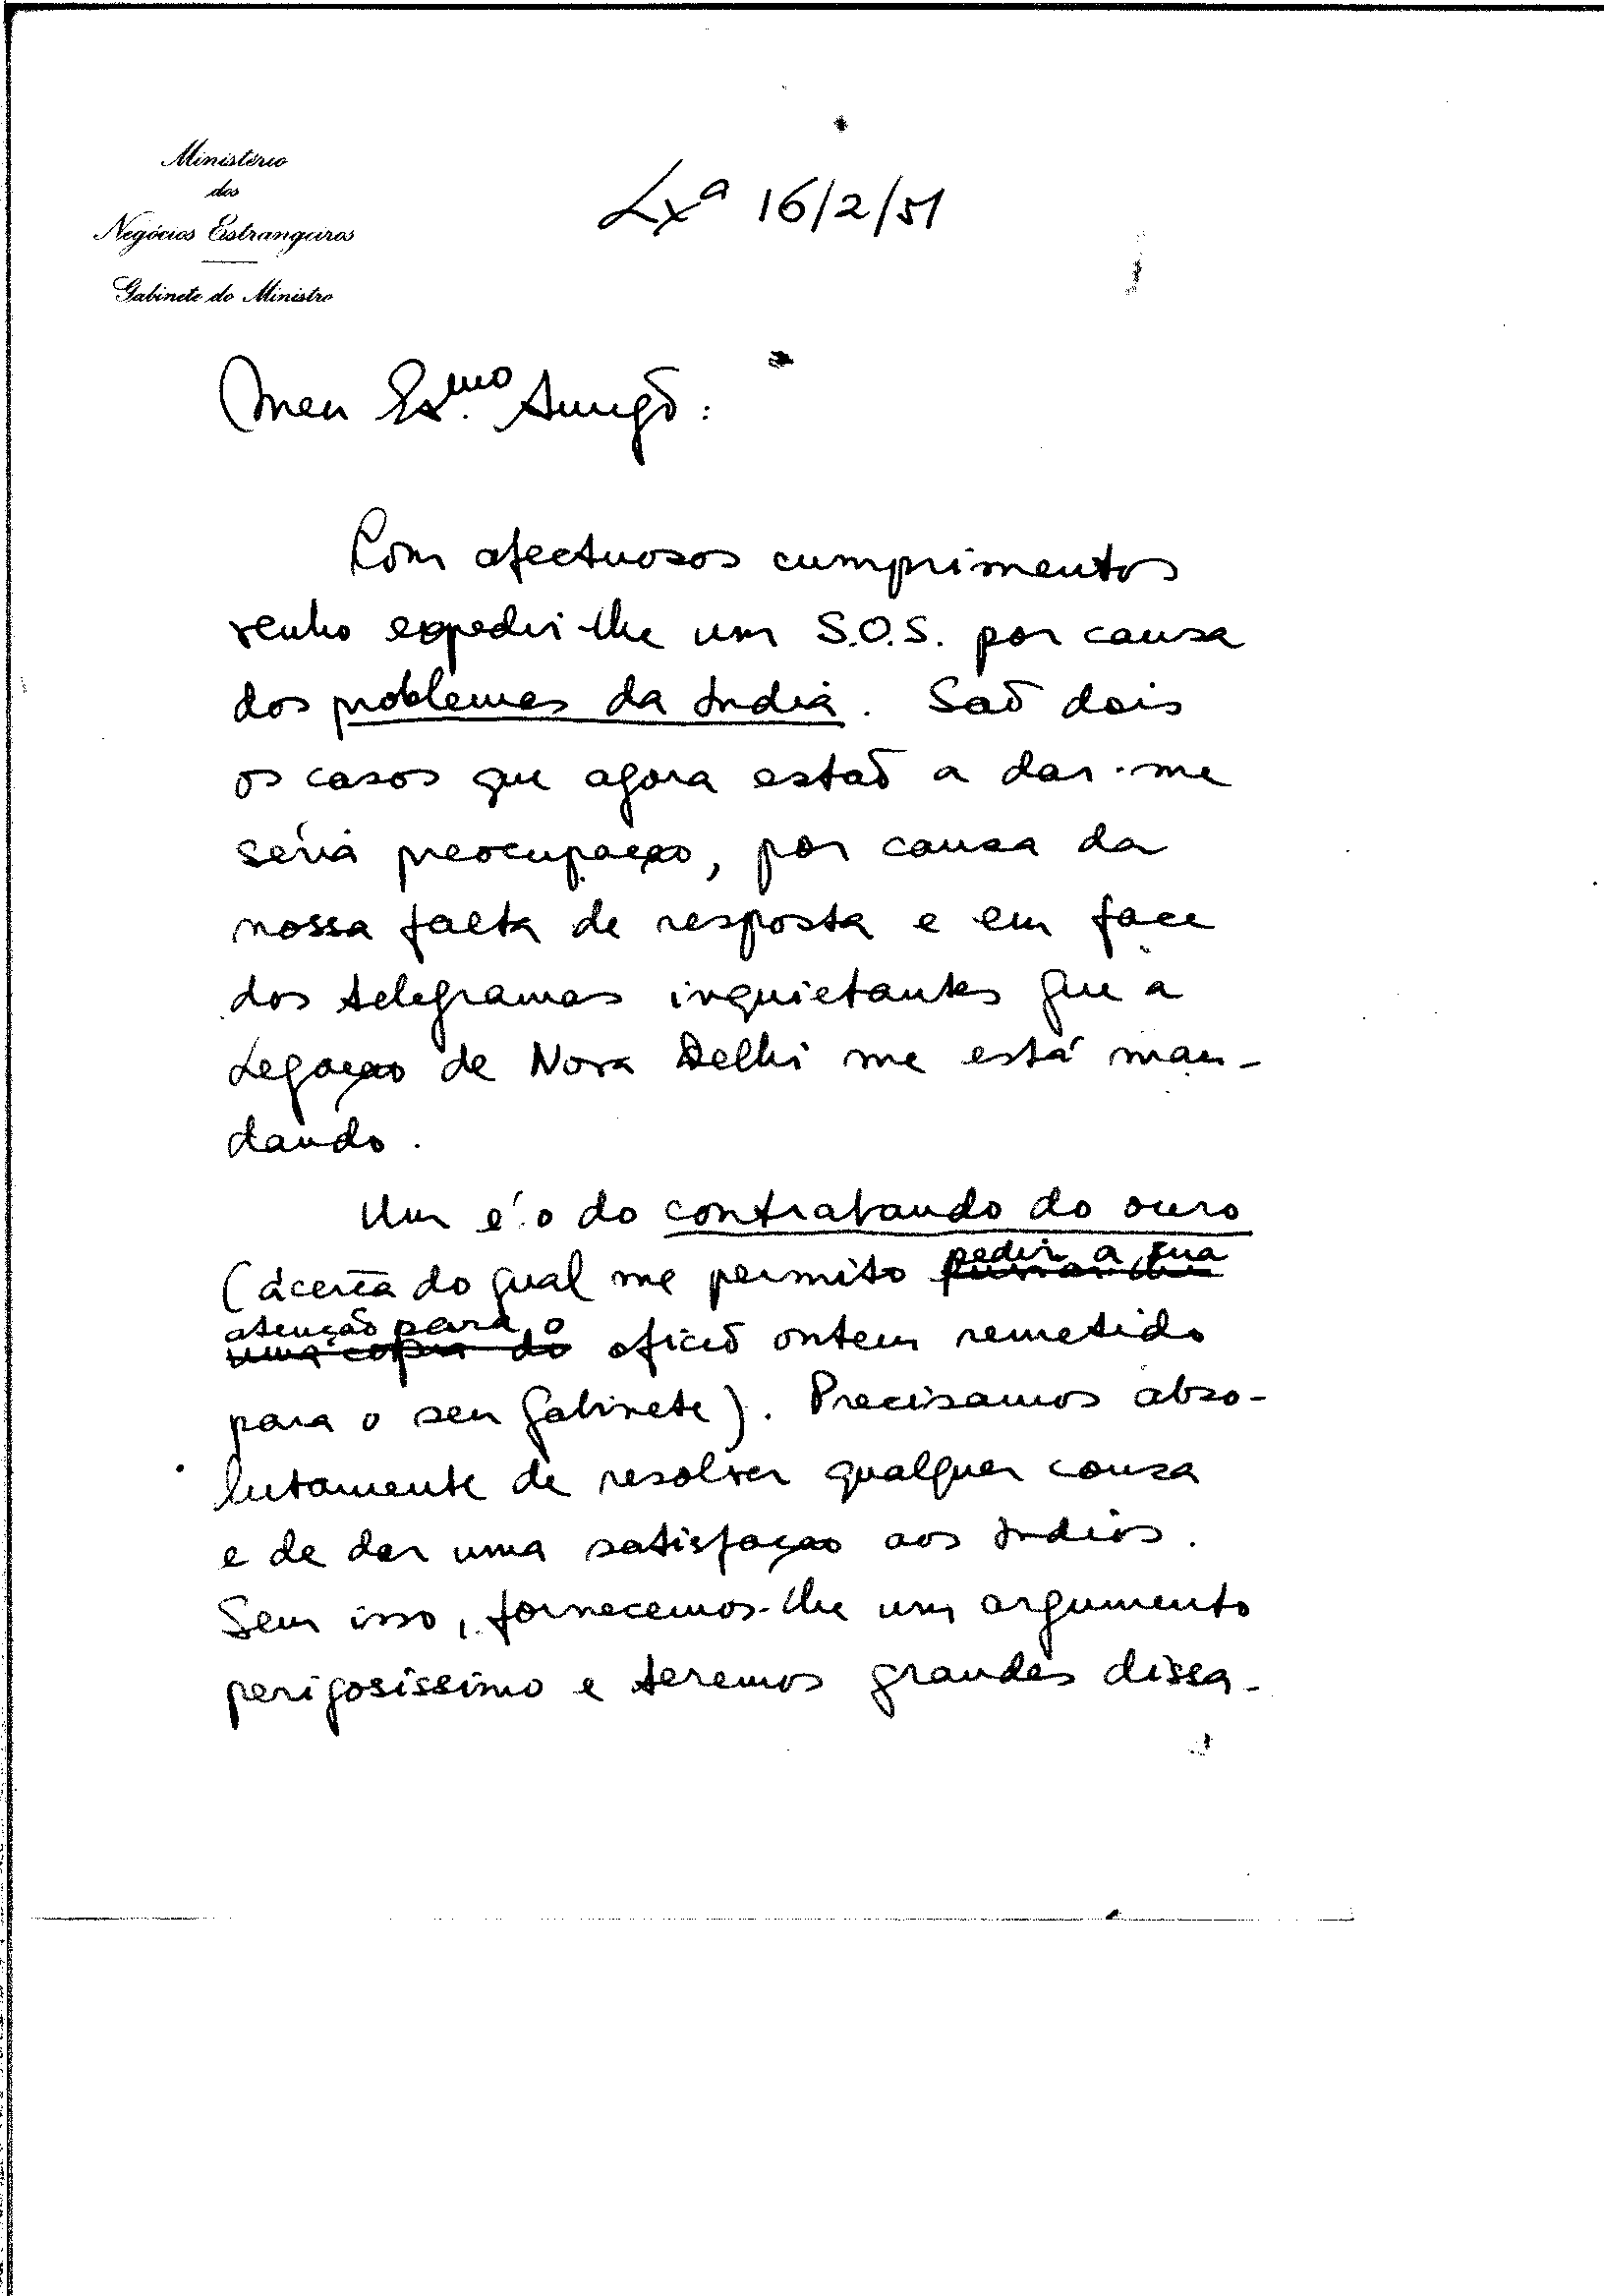 Ministério
dos
Negócios Estrangeiros
Gabinete do Ministro
Lxª 16/2/51
Meu Ex.mo Amigo:
Com afectuosos cumprimentos
venho expedir-lhe um S.O.S. por causa
dos problemas da India. Saõ dois
os casos que agora estaõ a dar-me
séria preocupaçao, por causa da
nossa falta de resposta e em face
dos telegramas inquietantes que a
Legaçao de Nova Delhi me está man-
dando.
Um é o do contrabando do ouro
(àcerca do qual me permito pedir a sua
atenção para o
uma copia do oficio ontem remetido
para o seu Gabinete). Precisamos abso-
lutamente de resolver qualquer cousa
e de dar uma satisfaçao aos Indios.
Sem isso, fornecemos-lhe um argumento
perigosissimo e teremos grandes dissa-